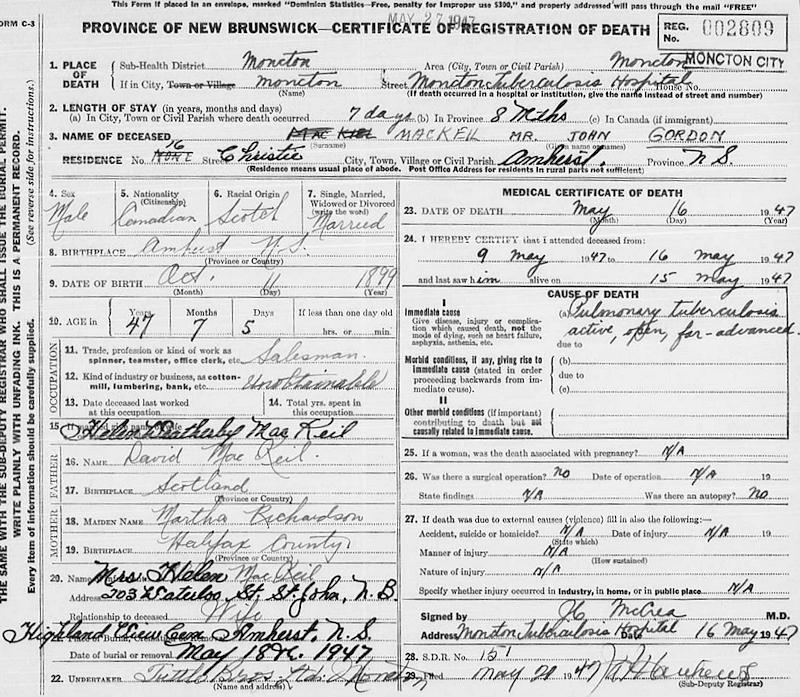 This Form if placed in an envelope, marked "Dominion Statistics—Free, penalty for improper use $300," and properly addressed will pass through the mail "FREE"
MAY 27 1947
FORM C-3
PROVINCE OF NEW BRUNSWICK—CERTIFICATE OF REGISTRATION OF DEATH
REG. No. 002809
MONCTON CITY
1. PLACE OF DEATH
Sub-Health District Moncton Area (City, Town or Civil Parish) Moncton
If in City, Town or Village Moncton Street Moncton Tuberculosis Hospital House No.
(Name) (If death occurred in a hospital or institution, give the name instead of street and number)
2. LENGTH OF STAY (in years, months and days)
(a) In City, Town or Civil Parish where death occurred 7 days (b) In Province 8 Mths (c) In Canada (if immigrant)
3. NAME OF DECEASED MacKiel MACKEIL MR. JOHN GORDON
(Surname) (Given name or names)
RESIDENCE No. NONE 16 Street Christie City, Town, Village or Civil Parish Amherst. Province N S.
(Residence means usual place of abode. Post Office Address for residents in rural parts not sufficient)
4. Sex Male
5. Nationality (Citizenship) Canadian
6. Racial Origin Scotch
7. Single, Married, Widowed or Divorced (write the word) Married
8. BIRTHPLACE Amherst N.S.
(Province or Country)
9. DATE OF BIRTH Oct. 11 1899
(Month) (Day) (Year)
10. AGE in Years 47 Months 7 Days 5 If less than one day old
hrs. or min.
OCCUPATION
11. Trade, profession or kind of work as spinner, teamster, office clerk, etc. Salesman.
12. Kind of industry or business, as cotton-mill, lumbering, bank, etc. Unobtainable
13. Date deceased last worked at this occupation
14. Total yrs. spent in this occupation
15. Helen Weatherby MacKeil
FATHER
16. NAME David MacKeil.
17. BIRTHPLACE Scotland
(Province or Country)
MOTHER
18. MAIDEN NAME Martha Richardson
19. BIRTHPLACE Halifax County
(Province or Country)
20. Mrs Helen MacKeil
Address 203 Waterloo St. St. John, N.B.
Relationship to deceased Wife
Highland View Cem. Amherst, N.S.
Date of burial or removal May 18th. 1947
22. UNDERTAKER Tuttle Bros Ltd. Moncton
(Name and address)
MEDICAL CERTIFICATE OF DEATH
23. DATE OF DEATH May 16 1947
(Month) (Day) (Year)
24. I HEREBY CERTIFY that I attended deceased from:
9 May 1947 to 16 May 1947
and last saw him alive on 15 May 1947
CAUSE OF DEATH
I
Immediate cause
Give disease, injury or complication which caused death, not the mode of dying, such as heart failure, asphyxia, asthenia, etc.
(a) Pulmonary tuberculosis
active, open, far-advanced.
due to
Morbid conditions, if any, giving rise to immediate cause (stated in order proceeding backwards from immediate cause).
(b)
due to
(c)
II
Other morbid conditions (if important) contributing to death but not causally related to immediate cause.
25. If a woman, was the death associated with pregnancy? N/A
26. Was there a surgical operation? No Date of operation N/A 19
State findings N/A Was there an autopsy? No
27. If death was due to external causes (violence) fill in also the following:—
Accident, suicide or homicide? N/A Date of injury N/A 19
(State which)
Manner of injury N/A
(How sustained)
Nature of injury N/A
Specify whether injury occurred in industry, in home, or in public place. N/A
Signed by McCrea M.D.
Address Moncton Tuberculosis Hospital Date 16 May 1947
28. S.D.R. No. 151
29. Filed May 1947
Sub-Deputy Registrar)
THE SAME WITH THE SUB-DEPUTY REGISTRAR WHO SHALL ISSUE THE BURIAL PERMIT.
(See reverse side for instructions.)
WRITE PLAINLY WITH UNFADING INK. THIS IS A PERMANENT RECORD.
Every item of information should be carefully supplied.